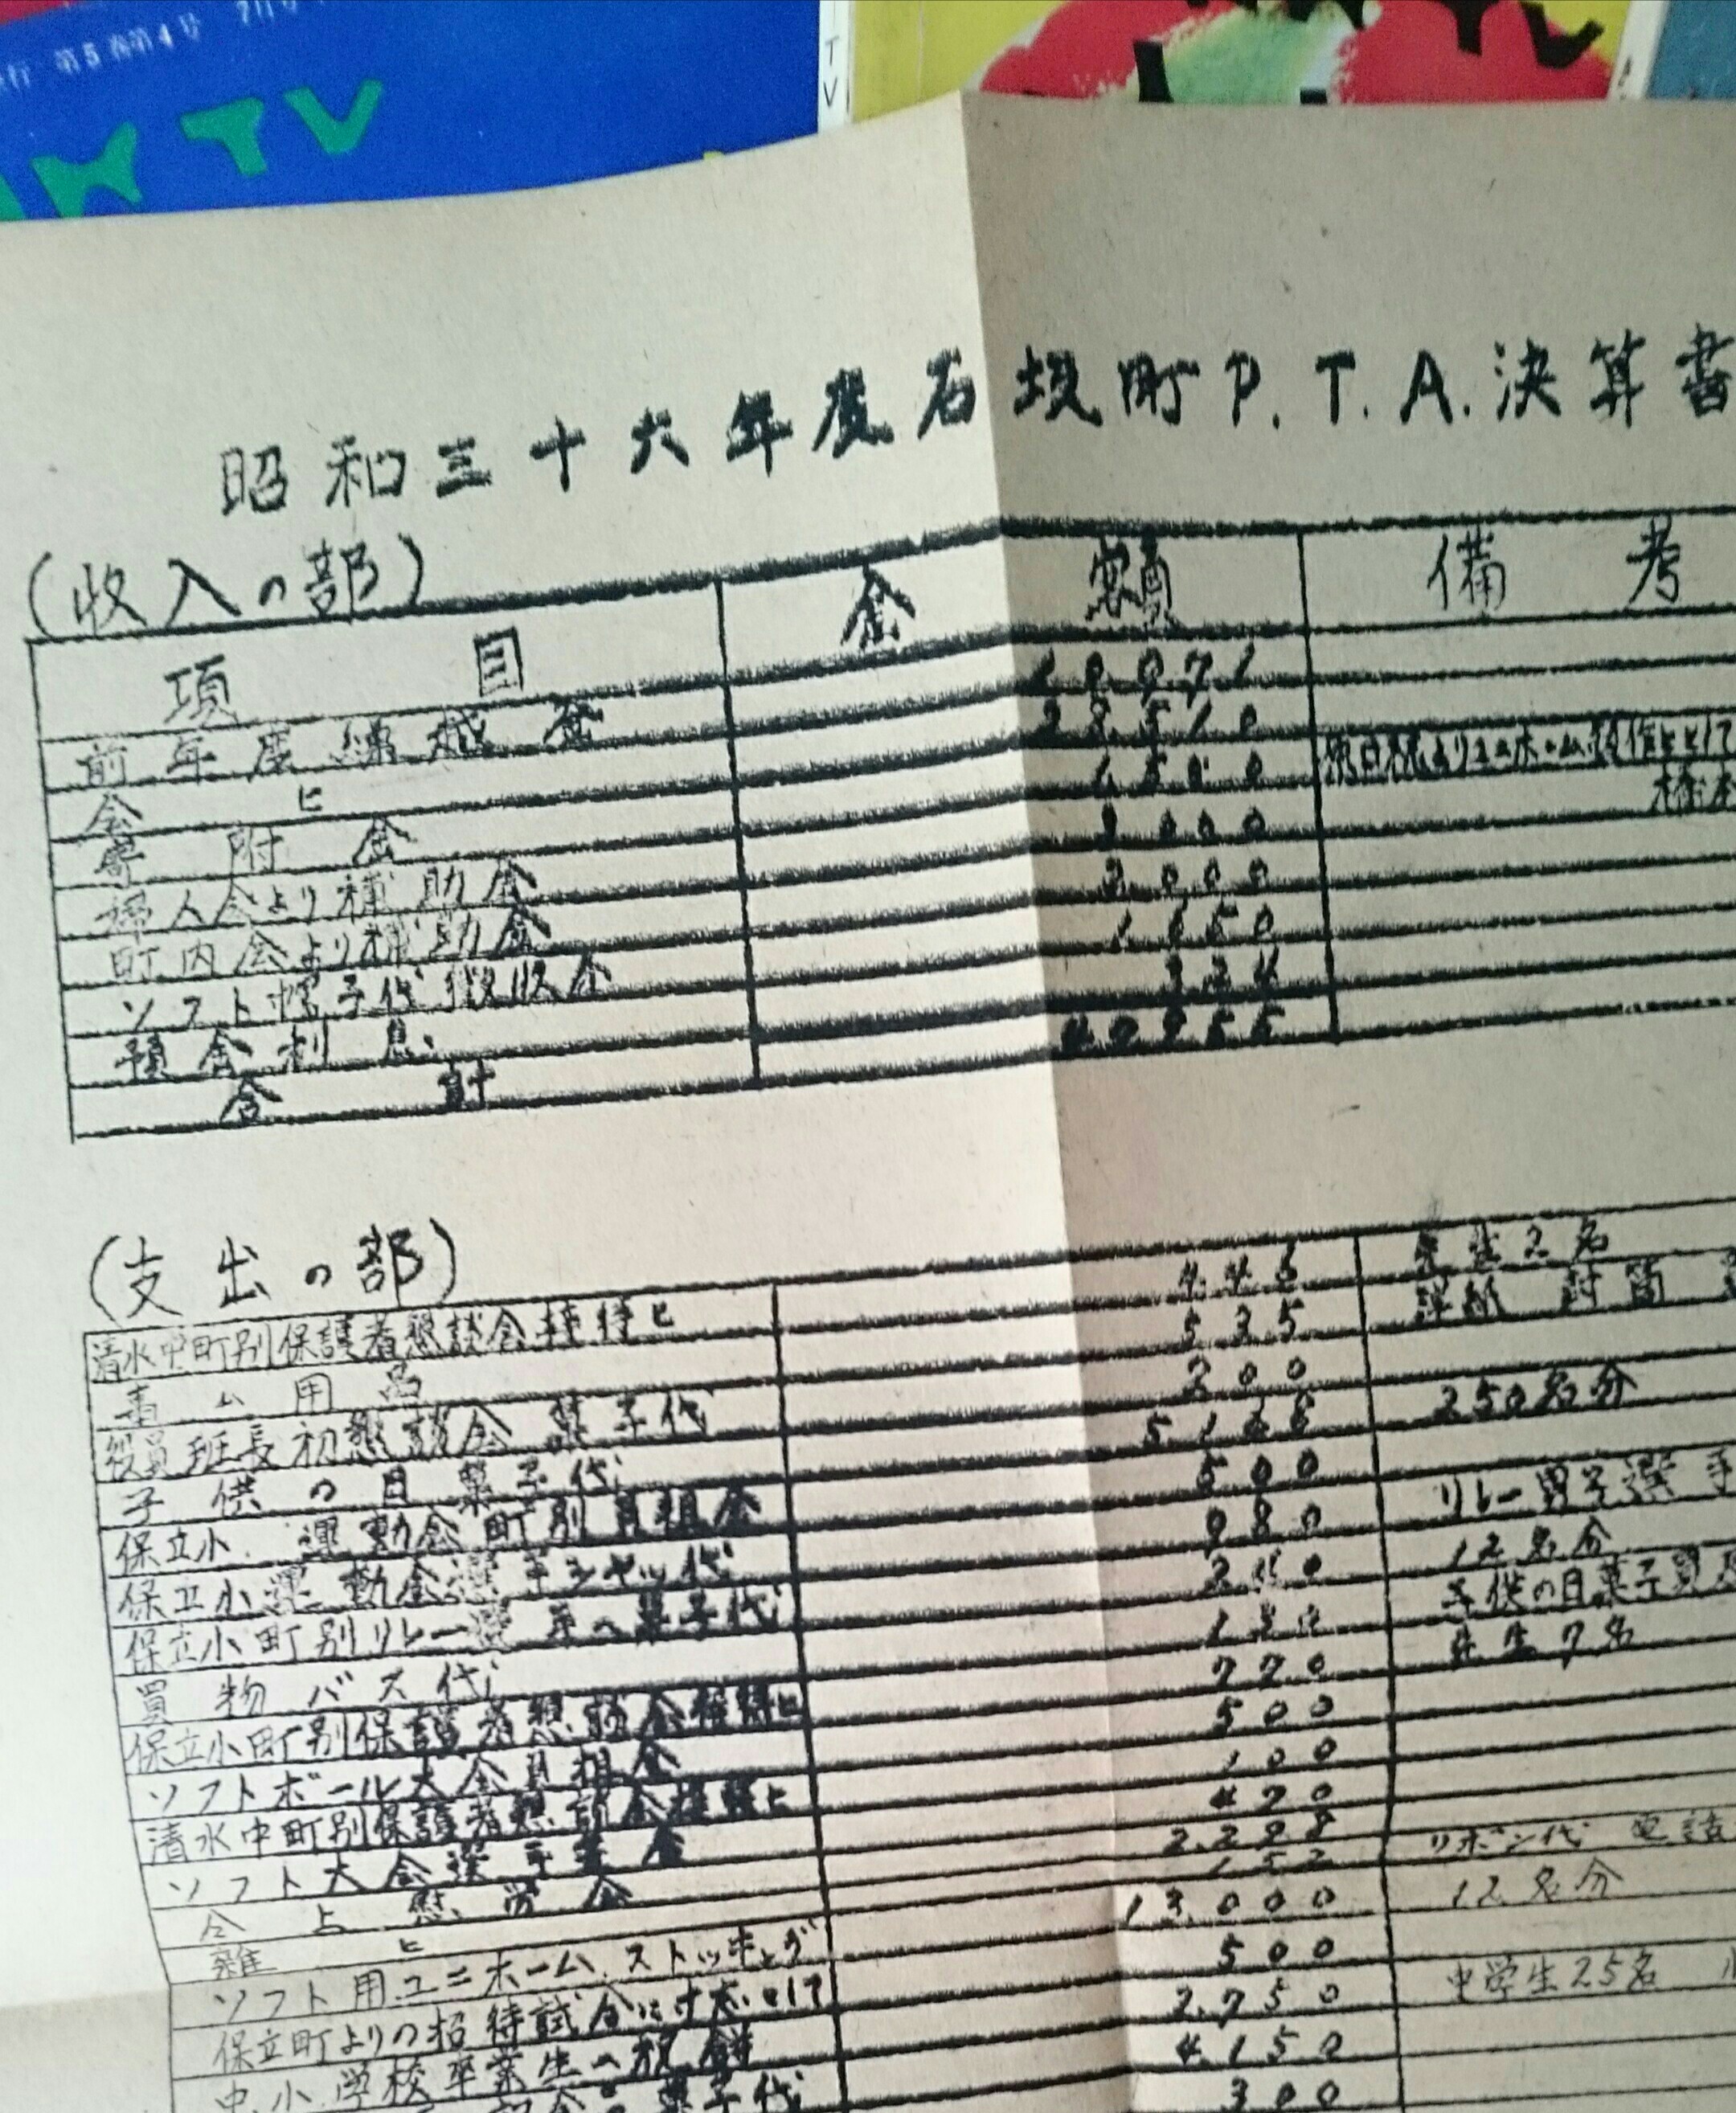 第5巻第4号 7月号
TV
TV
昭和三十六年度石坂町P.T.A.決算書
(収入の部)
項目 金額 備考
前年度繰越金 10071
会ヒ 22510
寄附金 1500
婦人会より補助金 000
町内会より補助金 000
ソフト帽子代徴収金 1650
預金利息 224
合計 40955
(支出の部)
清水中町別保護者懇談会接待ヒ 446 2名
用品 535 詳細 封筒
役員班長初懇談会菓子代 200
子供の日菓子代 5166 250名分
保立小運動会町別負担金 500
保立小運動会選手シャツ代 980 リレー男子選手
12名分
保立小町別リレー選手へ菓子代
買物バス代 子供の日菓子買
保立小町別保護者懇談会接待ヒ 770 先生7名
ソフトボール大会負担金 500
清水中町別保護者懇談会接待ヒ 100
ソフト大会選手 470
仝上慰労会 2.298
雑ヒ 152 リボン代 電話
ソフト用ユニホーム、ストッキング 13.000 12名分
保立町よりの招待試合に 500
中、小、学校卒業生へ祝 2.750 中学生25名
菓子代 4.150
300